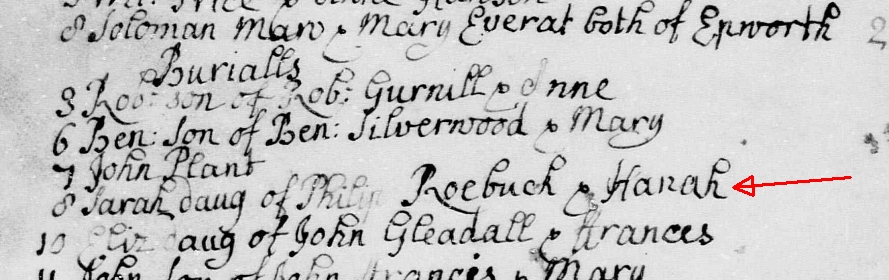 8 Soloman Maw & Mary Everat both of Epworth 2
Burialls
3 Rob: son of Rob: Gurnill & Anne
6 Ben: Son of Ben: Silverwood & Mary
7 John Plant
8 Sarah daug of Philip Roebuck & Hanah
10 Eliz daug of John Gleadall & Frances
11 John Son of John Frances & Mary